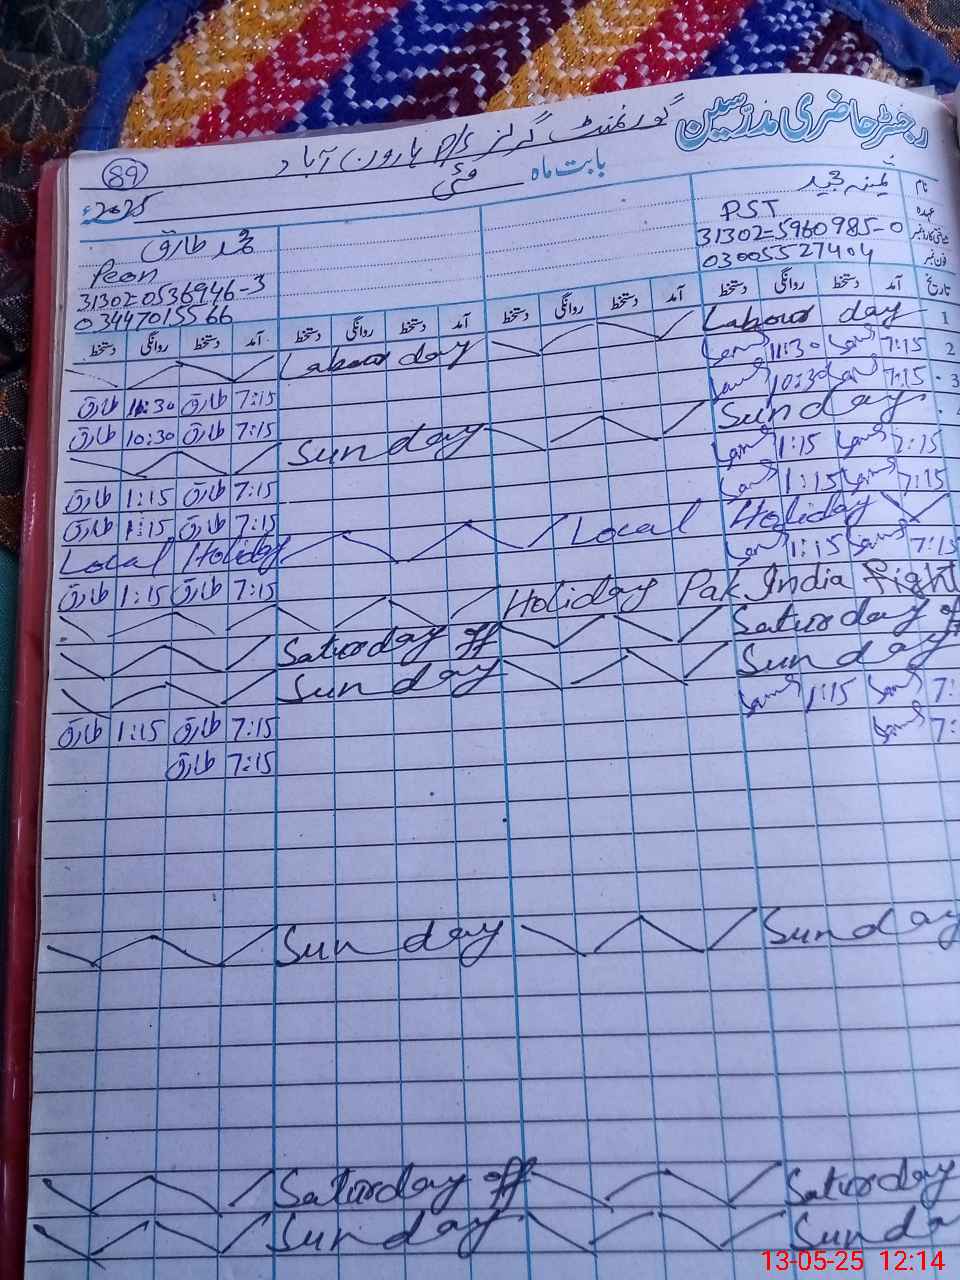 رجسٹر حاضری مدرسین
گورنمنٹ گرلز P/S ہارون آباد
89
بابت ماہ مئی 2025ء
نام
عہدہ PST
شناختی کارڈ نمبر 31302-5960985-0
فون نمبر 03005527404
محمد طارق
Peon
31302-0536946-3
03447015566
تاریخ آمد دستخط روانگی دستخط آمد دستخط روانگی دستخط آمد دستخط روانگی دستخط آمد دستخط روانگی دستخط
1 Labour day Labour day
2 7:15 11:30 7:15 طارق 11:30 طارق
3 7:15 10:30 7:15 طارق 10:30 طارق
Sunday Sunday
7:15 1:15 7:15 طارق 1:15 طارق
7:15 1:15 7:15 طارق 1:15 طارق
Local Holiday Local Holiday
7:15 1:15 7:15 طارق 1:15 طارق
Holiday Pak India fight
Saturday off Saturday
Sunday Sunday
7: 1:15 7:15 طارق 1:15 طارق
7: 7:15 طارق
Sunday Sunday
Saturday off Saturday
Sunday Sunda
13-05-25 12:14